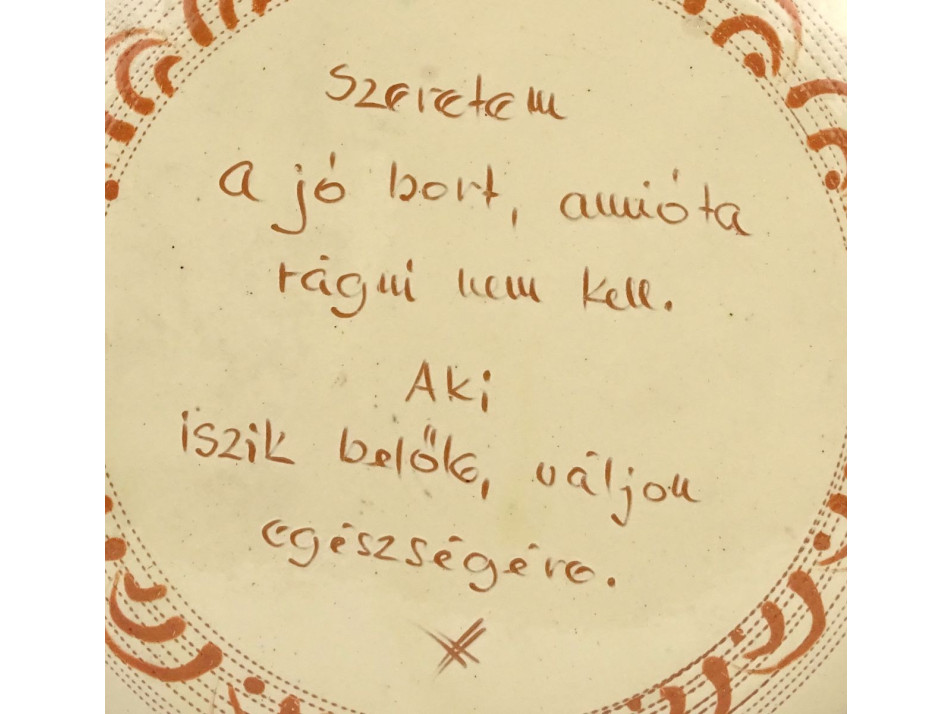 Szeretem
a jó bort, amióta
rágni nem kell.
Aki
iszik belőle, váljon
egészségére.